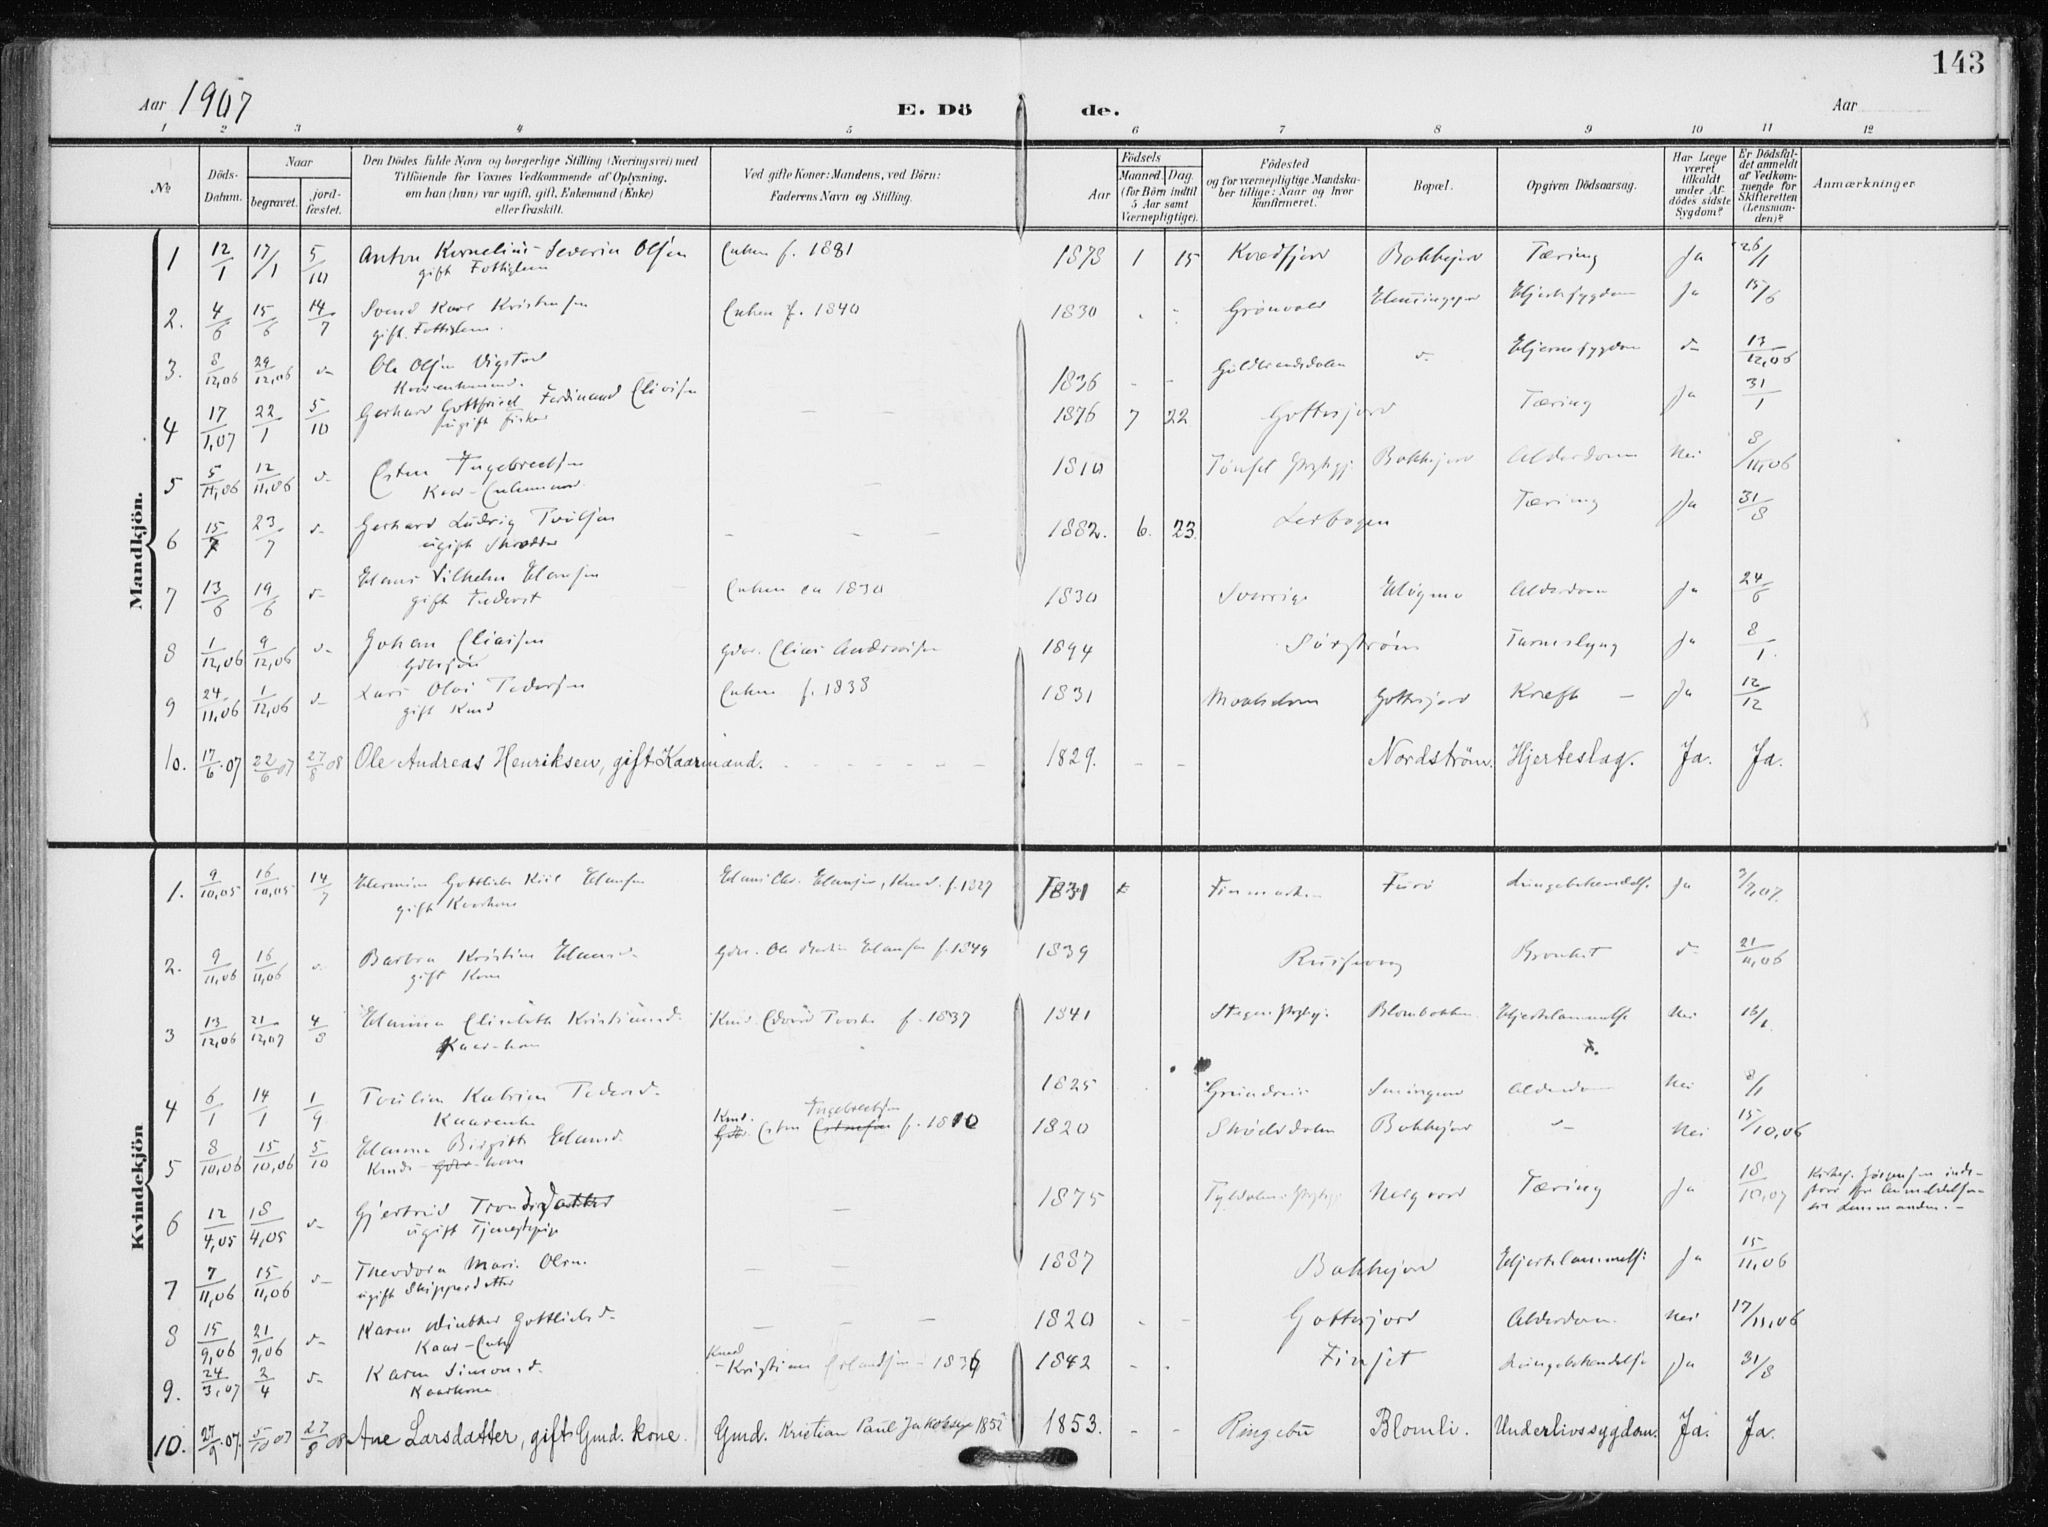 143
Aar 1907
E. Dö de.
Aar
1 2 3 4 5 6 7 8 9 10 11 12
№
Döds-Datum.
Naar
begravet.
jord-fæstet.
Den Dödes fulde Navn og borgerlige Stilling (Næringsvei) med
Tilföiende for Voxnes Vedkommende af Oplysning,
om han (hun) var ugift, gift, Enkemand (Enke)
eller fraskilt.
Ved gifte Koner: Mandens, ved Börn:
Faderens Navn og Stilling.
Aar
Födsels
Maaned. Dag.
(for Börn indtil
5 Aar samt
Værnepligtige).
Födested
og for værnepligtige Mandska-
ber tillige: Naar og hvor
konfirmeret.
Bopæl.
Opgiven Dödsaarsag.
Har Læge
været
tilkaldt
under Af-
dödes sidste
Sygdom?
Er Dödsfal-
det anmeldt
af Vedkom-
mende for
Skifteretten
(Lensman-
den)?
Anmærkninger
Mandkjön.
1 12/1 17/1 5/10 Anton Kornelius Severin Olsen Enken f. 1881 1878 1 15 Kvædfjord Bakkejord Tæring Ja 26/1
gift Fattiglem
2. 4/6 15/6 14/7 Svend Karl Kristensen Enken f. 1840 1830 Grönvold Hjertesygdom Ja 15/6
gift. Fattiglem.
3. 8/12,06 29/12,06 d- Ole Olsen Vigstad 1836 - - Guldbrandsdalen d- Hjernesygdom d- 13/12,06
4 17/1,07 22/1 5/10 Gerhard Gottfried Ferdinand - - 1876 7 22 Gottesjord Tæring Ja 31/1
ugift fisker
5 5/11,06 12/11,06 d- Esten Ingebrectsen - - 1810 Tönset Prgjeg. Bakkejord Alderdom Nei 8/11,06
Kaar-Enkemand
6 15/7 23/7 d- Gerhard Ludvig - - - 1882. 6. 23. Leirbogen Tæring Ja 31/8
ugift Skrædder
7 13/6 19/6 d- Hans Vilhelm Hansen Enken ca 1830 1830 Sverrige Alderdom Ja 24/6
gift Föderaad
8 1/12,06 9/12,06 d- Johan Eliassen Gdbr. Elias Andreassen 1894 Sörströmen Tarmslyng Ja 8/1.
Gdbrsön
9 24/11,06 1/12,06 d- Lars Olai Pedersen Enken f. 1838 1831 Maalselven Gottesjord Kræft - Ja 12/12
gift Kmd
10. 17/6.07 22/6 07 27/8 08 Ole Andreas Henriksen, gift Kaarmand. - - - - - - - 1829. - - Nordström. Hjerteslag. Ja. Ja.
Kvindekjön
1. 9/10,05 16/10,05 14/7 Gottliebe Kiil Hansen Hans Chr. Hansen, Kmd. f. 1829 1831 Finmarken Furö Lungebetændelse Ja 9/7,07.
gift Kaarkone
2. 9/11,06 16/11,06 d- Barbra Kristine Hansd. Gdbr. Ole Martin Hansen f. 1849 1839 Russevaag Bronkit d- 21/11,06
gift Kone
3 13/12,06 21/12,07 4/8 Hanna Elisabeth Kristiansd. Kmd. Edvard f. 1837 1841 Stegen Prgjeg. Blombakken Hjertelammelse Nei 16/1.
Kaar-kone
4 6/1 14/1 1/9 Katrine Pedersd. 1825 Alderdom Nei 8/1
Kaarenke
5 8/10,06 15/10,06 5/10 Hanna Birgitte Hansd. Kmd. Gdbr. Esten Estensen Ingebrectsen f. 1810 1820 Bakkejord d- Nei 15/10,06
Kmds- Gdbr-kone
6 12/4,05 18/4,05 d- Gjertrud Trondsdatter - 1875 Tyldalen Prgjeg. Tæring Ja 18/10,07
ugift Tjenestepige
7 7/11,06 15/11,06 d- Theodora Marie Olsen. - - 1887 Bakkejord Hjertelammelse Ja 15/11,06
ugift Skipperdatter
8 15/9,06 21/9,06 d- Karen Winther Gottliebsd. - - - 1820 - - Gottesjord Alderdom. Nei 17/11,06
Kaar-Enke
9. 24/3,07 2/4 d- Karen Simonsd. Kmd - Kristian Erlandsen - 1836 1842 - - Finset Lungebetændelse Ja 31/8
Kaarkone
10. 27/9.07. 5/10 07 27/8 08 Ane Larsdatter, gift Gmd. kone. Gmd. Kristian Paul Jakobsen 1852 1853. - - Ringebu Blomli. Underlivssygdom. Ja. Ja.